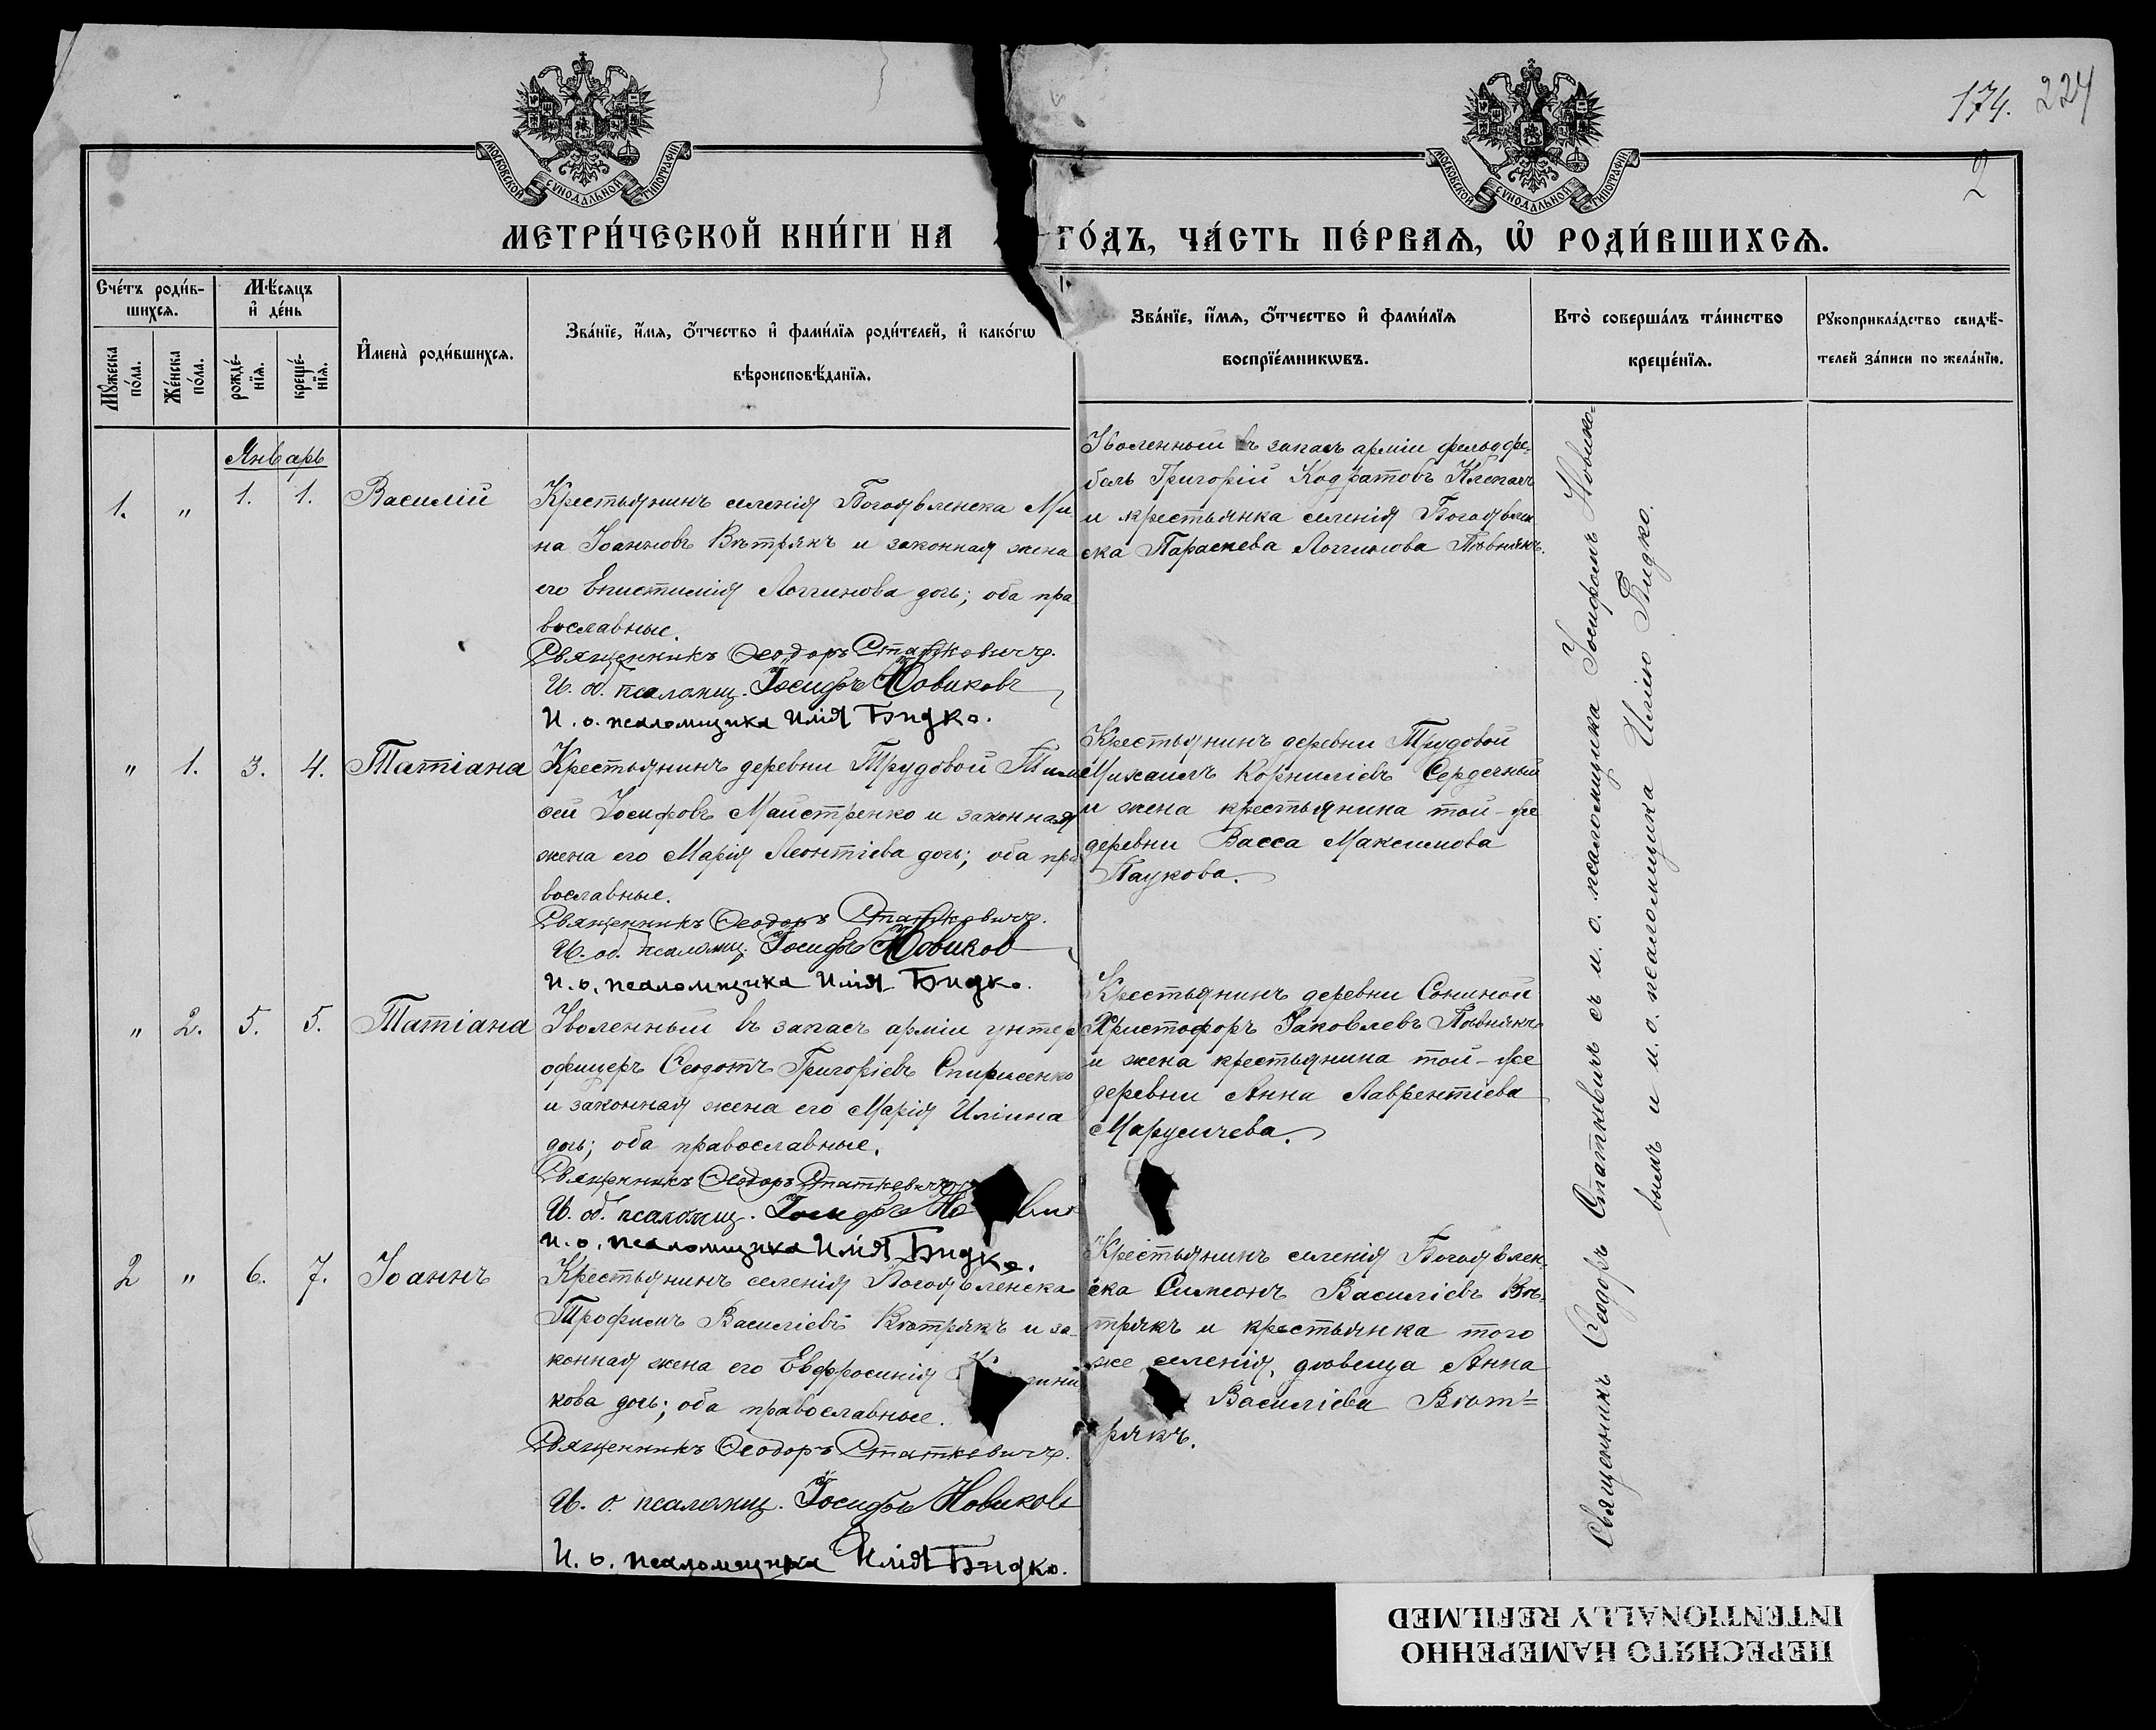 174. 224
2
МОСКОВСКОЙ СѴНОДАЛЬНОЙ ТИПОГРАФІИ.
МОСКОВСКОЙ СѴНОДАЛЬНОЙ ТИПОГРАФІИ.
МЕТРИ́ЧЕСКОЙ КНИ́ГИ НА
ГО́ДЪ, ЧА́СТЬ ПЕ́РВАѦ, Ѡ҆ РОДИ́ВШИХСѦ.
Сче́тъ роди́в-
шихсѧ.
Мꙋ́жеска по́ла.
Же́нска по́ла.
Мѣ́сѧцъ
и҆ де́нь
рожде́-нїѧ.
креще́-нїѧ.
И҆мена̀ роди́вшихсѧ.
Зва́нїе, и҆́мѧ, ѻ҆́тчество и҆ фами́лїѧ роди́телей, и҆ како́гѡ
вѣроисповѣ́данїѧ.
Зва́нїе, и҆́мѧ, ѻ҆́тчество и҆ фами́лїѧ
воспрїе́мникѡвъ.
Кто̀ соверша́лъ та́инство
креще́нїѧ.
Рꙋкоприкла́дство свидѣ́-
телей за́писи по жела́нїю.
Январь
1. " 1. 1. Василій
Крестьянинъ селенія Богоявленска Ми
на Іоанновъ Вѣтрякъ и законная жена
его Епистимія Логгинова дочь; оба пра
вославные.
Священникъ Ѳеодоръ Статкевичъ.
И. об. псаломщ. Іосифъ Новиковъ
И. о. псаломщика Илія Бидко.
Уволенный въ запасъ арміи фельдфе-
бель Григорій Кодратовъ Клепачъ
и крестьянка селенія Богоявлен
ска Параскева Логгинова Пѣвнякъ.
" 1. 3. 4. Татіана
Крестьянинъ деревни Трудовой Тимо
ѳей Іосифовъ Майстренко и законная
жена его Марія Леонтіева дочь; оба пра
вославные.
Священникъ Ѳеодоръ Статкевичъ.
И. об. псаломщ. Іосифъ Новиков
И. о. псаломщика Илія Бидко.
Крестьянинъ деревни Трудовой
Михаилъ Корниліевъ Сердечный
и жена крестьянина той-же
деревни Васса Максимова
Паукова.
" 2. 5. 5. Татіана
Уволенный въ запасъ арміи унтеръ
офицеръ Ѳеодотъ Григоріевъ Спириенко
и законная жена его Марія Иліина
дочь; оба православные.
Священникъ Ѳеодоръ Статкевичъ
И. об. псаломщ. Іосифъ Но
И. о. псаломщика Илія Бидко.
Крестьянинъ деревни Сониной
Христофоръ Іаковлевъ Пѣвнякъ
и жена крестьянина той-же
деревни Анна Лаврентіева
Марущева.
2 " 6. 7. Іоаннъ
Крестьянинъ селенія Богоявленска
Трофимъ Василіевъ Вѣтрякъ и за-
конная жена его Евфросинія
кова дочь; оба православные.
Священникъ Ѳеодоръ Статкевичъ.
И. о. псаломщ. Іосифъ Новиковъ
И. о. псаломщика Илія Бидко.
Крестьянинъ селенія Богоявлен-
ска Симеонъ Василіевъ Вѣ-
трякъ и крестьянка того
же селенія, дѣвица Анна
Василіева Вѣт-
рякъ.
Священникъ Ѳеодоръ Статкевичъ съ и. о. псаломщика Іосифомъ Новико-
вымъ и и. о. псаломщика Иліею Бидко.
ПЕРЕСНЯТО НАМЕРЕННО
INTENTIONALLY REFILMED